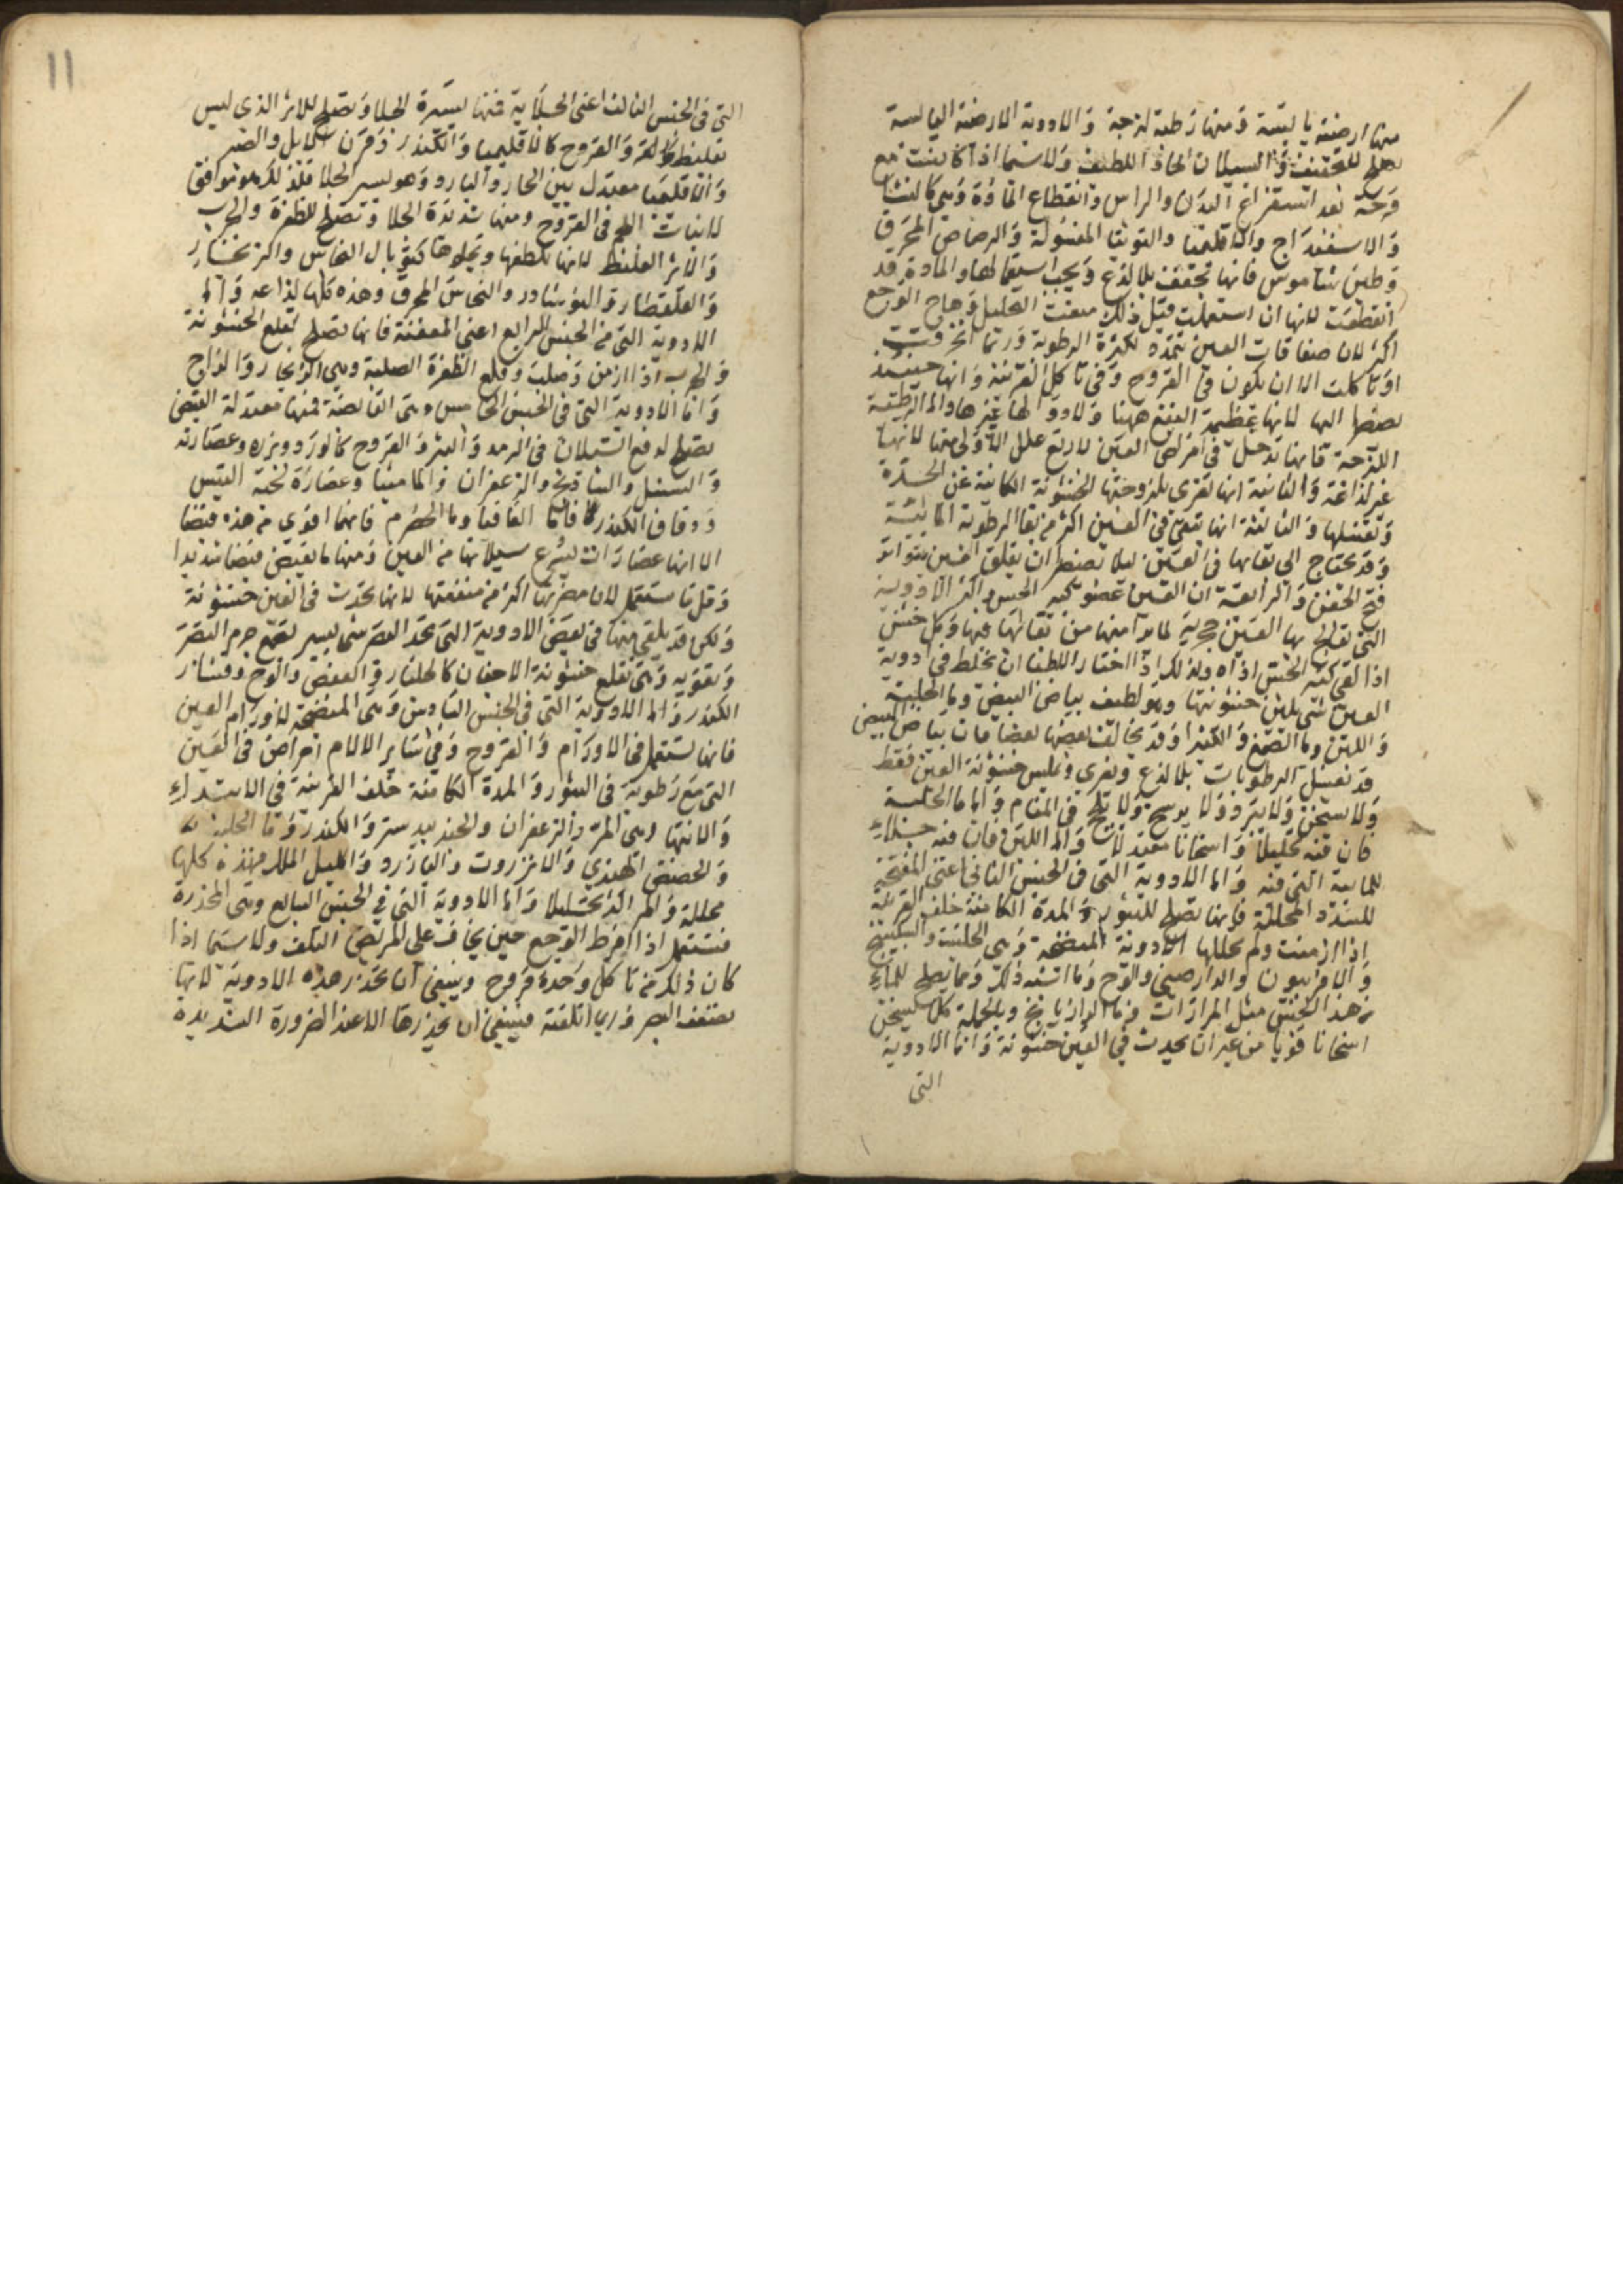 منها ارضية يابسة ومنها رطبة لزجة والادوية الارضية اليابسة
تصلح للتجفيف والسيلان الحاد اللطيف ولا سيما اذا كانت مع
قرحة بعد استفراغ البدن والراس وانقطاع المادة وهي كالنشا
والاسفيداج والاقليميا والتوتيا المغسولة والرصاص المحرق
وطين شاموس فانها تجفف بلا لذع ويجب استعمالها والمادة قد
انقطعت لانها ان استعملت قبل ذلك منعت التحليل وهاج الوجع
اكثر لان صفاقات العين تتمدد لكثرة الرطوبة وربما انخرقت
او تاكلت الا ان يكون في القروح وفي تاكل القرنية وانها حينئذ
يضطر اليها لانها عظيمة النفع ههنا ولا دوا لها غيرها واما الرطبة
اللزجة فانها تدخل في امراض العين لاربع علل الاولى منها لانها
غير لذاعة والثانية انها تغري بلزوجتها الخشونة الكائنة عن الحدة
وتغسلها والثالثة انها تبقى في العين اكثر من بقا الرطوبة المائية
وقد يحتاج الى بقائها في العين ليلا تضطر ان يقلق العين بتواتر
فتح الجفن والرابعة ان العين عضو كثير الحس واكثر الادوية
التي تعالج بها العين حجرية
اذا لقي كثير الحس اذاه ولذلك اختار اللطفا ان يخلط في ادوية
العين شي يلين خشونتها وهو لطيف بياض البيض وما الحلبة
واللبن وما الصمغ والكثيرا وقد يخالف بعضها بعضا فان بياض البيض
قد يغسل الرطوبات بلا لذع ويغري ويملس خشونة العين فقط
ولا يسخن ولا يبرد ولا في المقام واما ما الحلبة
فان فيه تحليلا واسخانا معتدلا واما اللبن فان فيه جلاء
للمايية التي فيه واما الادوية التي في الجنس الثاني اعني المفتحة
للسدد المحللة فانها تصلح للبثور والمدة الكامنة خلف القرنية
اذا ازمنت ولم تحللها الادوية المنضجة وهي الحلتيت والسكبينج
والافربيون والدارصيني والوج وما اشبه ذلك ومما يصلح للماء
من هذا الجنس مثل المرارات وما الرازيانج وبالجملة كل يسخن
اسخانا قويا من غير ان يحدث في العين خشونة واما الادوية
التي
11
التي في الجنس الثالث اعني الجلاية فمنها يسيرة الجلا وتصلح للاثر الذي ليس
بغليظ والقروح كالاقليميا والكندر وقرن الايل والصبر
والاقليميا معتدل بين الحار والبارد وهو يسير الجلا فلذلك هو موافق
لانبات اللحم في القروح ومنها شديدة الجلا وتصلح للظفرة والجرب
والاثر الغليظ لانها تلطفها وتجلوها كتوبال النحاس والزنجار
والقلقطار والنوشادر والنحاس المحرق وهذه كلها لذاعة واما
الادوية التي من الجنس الرابع اعني المعفنة فانها تصلح لقلع الخشونة
والجرب اذا ازمن وصلب وقلع الظفرة الصلبة وهي الزنجار والزاج
واما الادوية التي في الجنس الخامس وهي القابضة فمنها معتدلة القبض
تصلح لدفع السيلان في الرمد والبثر والقروح كالورد وبزره وعصارته
والسنبل والشاذنج والزعفران والماميثا وعصارة لحية التيس
ودقاق الكندر فاما القاقيا وما الحصرم فانهما اقوى من هذه قبضا
الا انها عصارات يسرع سيلانها من العين ومنها ما يقبض قبضا شديدا
وقل ما يستعمل لان مضرتها اكثر من منفعتها لانها تحدث في العين خشونة
ولكن قد يلقى منها في بعض الادوية التي تحد البصر شي يسير يجمع جرم البصر
ويقويه وهي تقلع خشونة الاجفان كالجلنار والعفص والوج وقشار
الكندر واما الادوية التي في الجنس السادس وهي المنضجة لاورام العين
فانها تستعمل في الاورام والقروح وفي سائر الالام امراض في العين
التي مع رطوبة في البثور والمدة الكامنة خلف القرنية في الابتداء
والانتها وهي المر والزعفران والجندبيدستر والكندر وما الحلبة
والحضض الهندي والانزروت والبارزد واكليل الملك فهذه كلها
محللة والمر اكثر تحليلا واما الادوية التي في الجنس السابع وهي المخدرة
فتستعمل اذا افرط الوجع حين يخاف على المريض التلف ولا سيما اذا
كان ذلك من تاكل وحدة قروح وينبغي ان تحذر هذه الادوية لانها
تضعف البصر وربما اتلفته فينبغي ان يحذرها الا عند الضرورة الشديدة